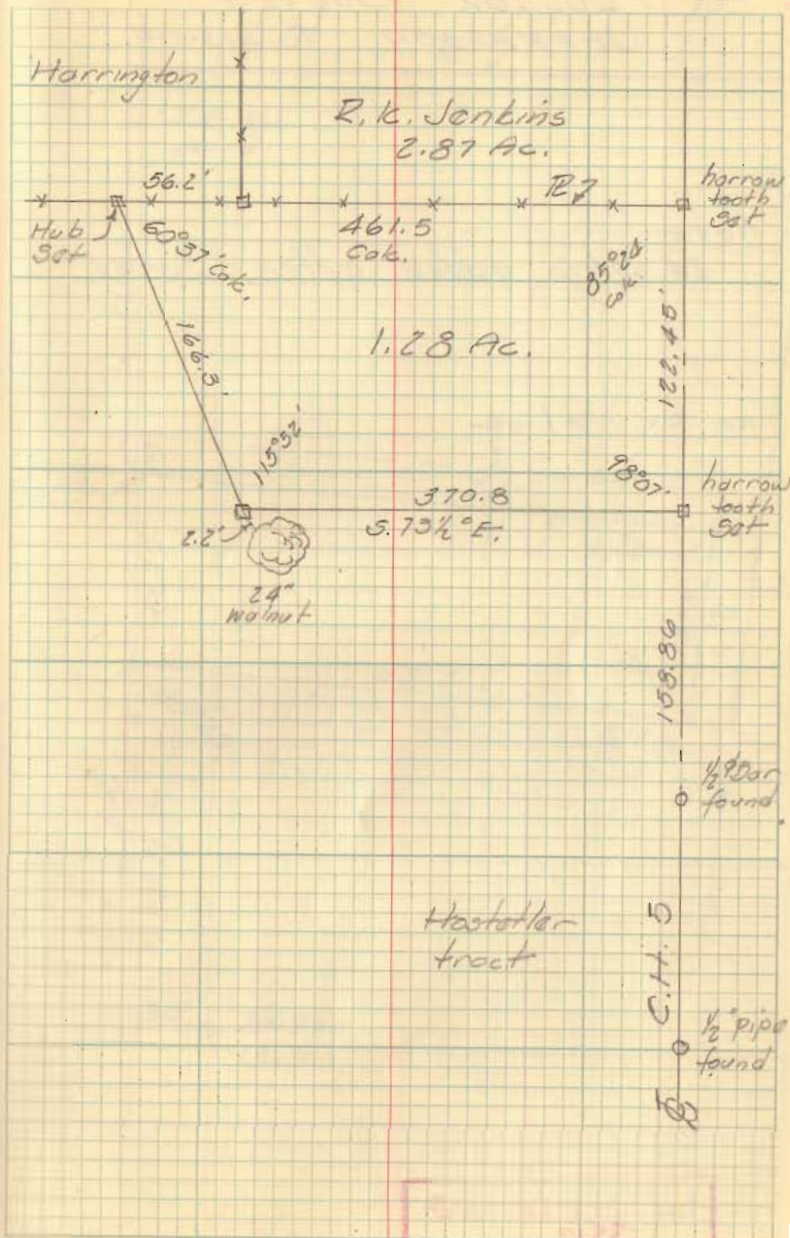 Harrington
R. K. Jenkins
2.87 Ac.
56.2'
harrow
tooth
set
Hub
Set
60°37' Calc.
461.5
Calc.
85°24'
Calc.
166.3'
1.28 Ac.
122.45'
115°52'
98°07'
harrow
tooth
set
370.8
S. 73½° E.
2.2'
24"
walnut
158.86
½"
found
Hostetler
tract
C.H. 5
½" pipe
found